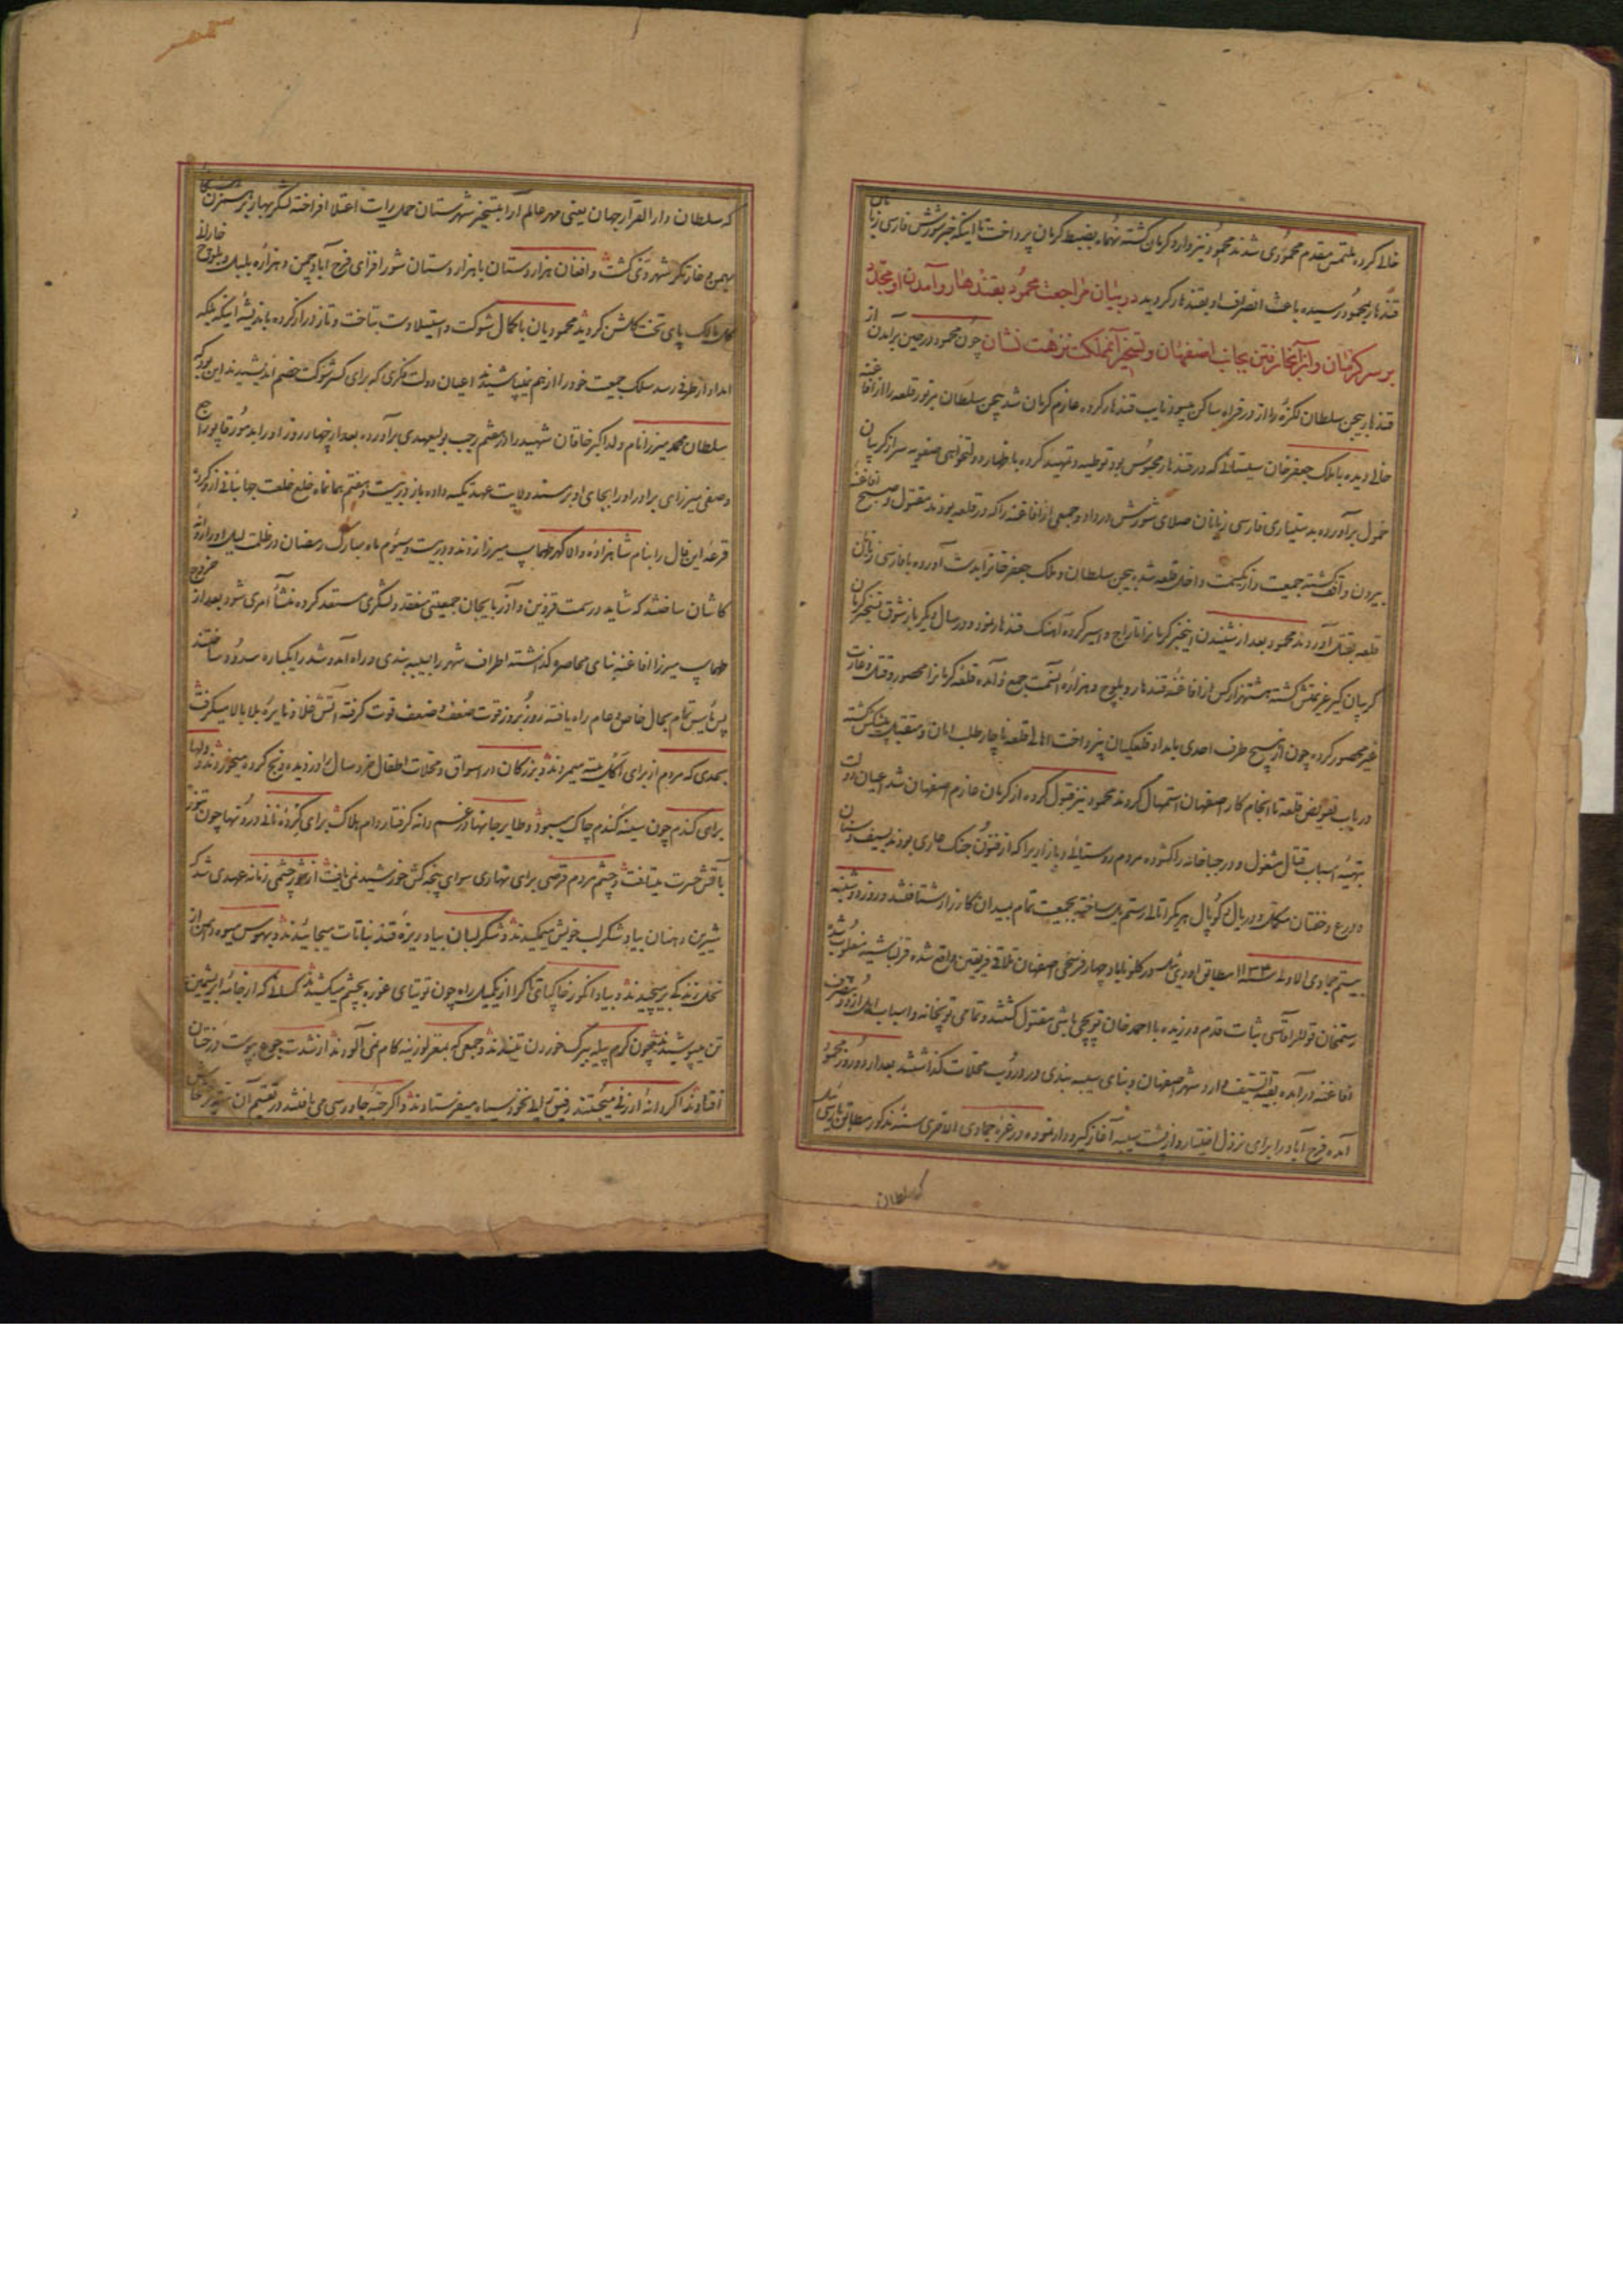 خالی کرده ملتمس مقدم محمودی شدند محمود نیز وارد کرمان گشته نه ماه بضبط کرمان پرداخت تا اینکه خبر شورش فارسی زبانان
قندهار بمحمود رسیده باعث انصراف او بقندهار گردید در بیان مراجعت محمود بقندهار و آمدن او مجدد
بر سر کرمان و از آنجا رفتن بجانب اصفهان و تسخیر آن مملکت نزهت نشان چون محمود در حین برآمدن از
قندهار بیجن سلطان لکزی را از در فراه ساکن میبود نایب قندهار کرده عازم کرمان شد بیجن سلطان بر تور قلعه را از افاغنه
خالی دیده با ملک جعفر خان سیستانی که در قندهار محبوس بود توطیه و تمهید کرده باظهار دولتخواهی صفویه سر از گریبان
خمول برآورده بدستیاری فارسی زبانان صلای شورش در داد و جمعی از افاغنه را که در قلعه بودند مقتول و صبح افاغنه
بیرون واقف گشته جمعیت و از یکسمت داخل قلعه شده بیجن سلطان و ملک جعفر خانرا بدست آورده با فارسی زبانان
قلعه بقتل آوردند محمود بعد از شنیدن اینخبر کرمانرا تاراج و اسیر کرده آهنگ قندهار نمود و در سال دیگر باز شوق تسخیر کرمان
گریبان گیر عزیمتش گشته هشتهزار کس از افاغنه قندهار و بلوچ و هزاره آنسمت جمع و آمده قلعه کرمانرا محصور و قتل و غارت
غیر محصور کرده چون از هیچ طرف احدی بامداد قلعگیان نپرداخت اهالی قلعه ناچار طلب امان و متقبل پیشکش گشته
در باب تفویض قلعه تا انجام کار اصفهان استمهال کردند محمود نیز قبول کرده از کرمان عازم اصفهان شد اعیان دولت
بتهیه اسباب قتال مشغول و در جباخانه را گشوده مردم روستائی و بازاریرا که از فنون جنگ عاری بودند بسیف و سنان
و درع و خفتان مکمل و در یال و کوپال هر یک را ثانی رستم یل ساخته بجمعیت تمام بمیدان کارزار شتافتند و روز دوشنبه
بیستم جمادی الاولی سنه ۱۱۳۴ مطابق اودئیل در گلوناباد چهار فرسخی اصفهان تلاقی فریقین واقع شده قزلباشیه مغلوب شد
رستمخان قوللر اقاسی ثبات قدم ورزیده با احمد خان توپچی باشی مقتول گشتند و تمامی توپخانه و اسباب اردو بتصرف
افاغنه درآمده بقیة السیف وارد شهر اصفهان و بنای سیبه بندی در دروب محلات گذاشتند بعد از دو روز محمود
آمده فرح آباد را برای نزول اختیار و از پشت سیبه آغاز گیرودار نموده در غره جمادی الاخری سنه مذکور مطابق پارس ئیل
که سلطان
که سلطان دار القرار جهان یعنی مهر عالم آرا بتسخیر شهرستان حمل رایت اعتلا افراخته لشکر بهار بر سر زمستان
بهمن و غارتگر شهر دی گشت و افغان هزاردستان با هزار دستان شور افزای فرح آباد چمن و هزاره بلبل و بلوچ خارلان
گل مالک پای تخت گلشن گردید محمودیان با کمال شوکت و استیلا دست بتاخت و تاز دراز کرده باندیشه اینکه بلکه
امداد از طرفی رسد سلک جمعیت خود را از هم نمیپاشیدند اعیان دولت فکری که برای کسر شوکت خصم اندیشیدند این بود که
سلطان محمد میرزا نام ولد اکبر خاقان شهید را در هشتم رجب بولیعهدی برآورده بعد از چهار روز او را بدستور قاپوراج
و صفی میرزای برادر او را بجای او بر مسند ولایت عهد تکیه داده باز در بیست و هفتم همانماه خلع خلعت جهانبانی از او کرده
قرعه این فال را بنام شاهزاده والا گهر طهماسب میرزا زدند و در بیست و سیوم ماه مبارک رمضان در ظلمت لیل او را روانه
کاشان ساختند که شاید در سمت قزوین و آذربایجان جمعیتی منعقد و لشکری مستعد کرده منشأ امری شود بعد از خروج
طهماسب میرزا افاغنه بنای محاصره گذاشته اطراف شهر را سیبه بندی و راه آمد و شد را یکباره مسدود ساختند
پس یأس تمام بحال خاص و عام راه یافته روز بروز قوت ضعف و ضعف قوت گرفته آتش غلا و نایره بلا بالا میگرفت
بحدی که مردم از برای اکل میته میمردند و بزرگان در اسواق و محلات اطفال خردسال را دزدیده و ذبح کرده میخوردند دلها
برای گندم چون سینه گندم چاک میبود و طایر جانها در غم دانه گرفتار دام هلاک برای گرده نانی درونها چون تنور
بآتش حسرت میتافت و چشم مردم قرصی برای نهاری سوای پنجه کش خورشید نمی یافت از شور چشمی زمانه عهدی شد که
شیرین دهنان بیاد شکر لب خویش میمکیدند و شکر لبان بیاد ریزه قند نباتات میخائیدند و بهوس میوه دامن از
نخل زندگی برمیچیدند و بیاد انگور خاک پای تاک را از یکمیل راه چون توتیای غوره بچشم میکشیدند کسانی که از جامه ابریشمین
تن میپوشیدند چون کرم پیله ببرگ خوردن تنیدند و جمعی که بمغز لوزینه کام نمی آلودند از شدت جوع بپوست درختان
افتادند اگر دانه ارزنی میجستند رفیق را بطلب نخود سیاه میفرستادند و اگر حبه جاورسی می یافتند در تقسیم آن